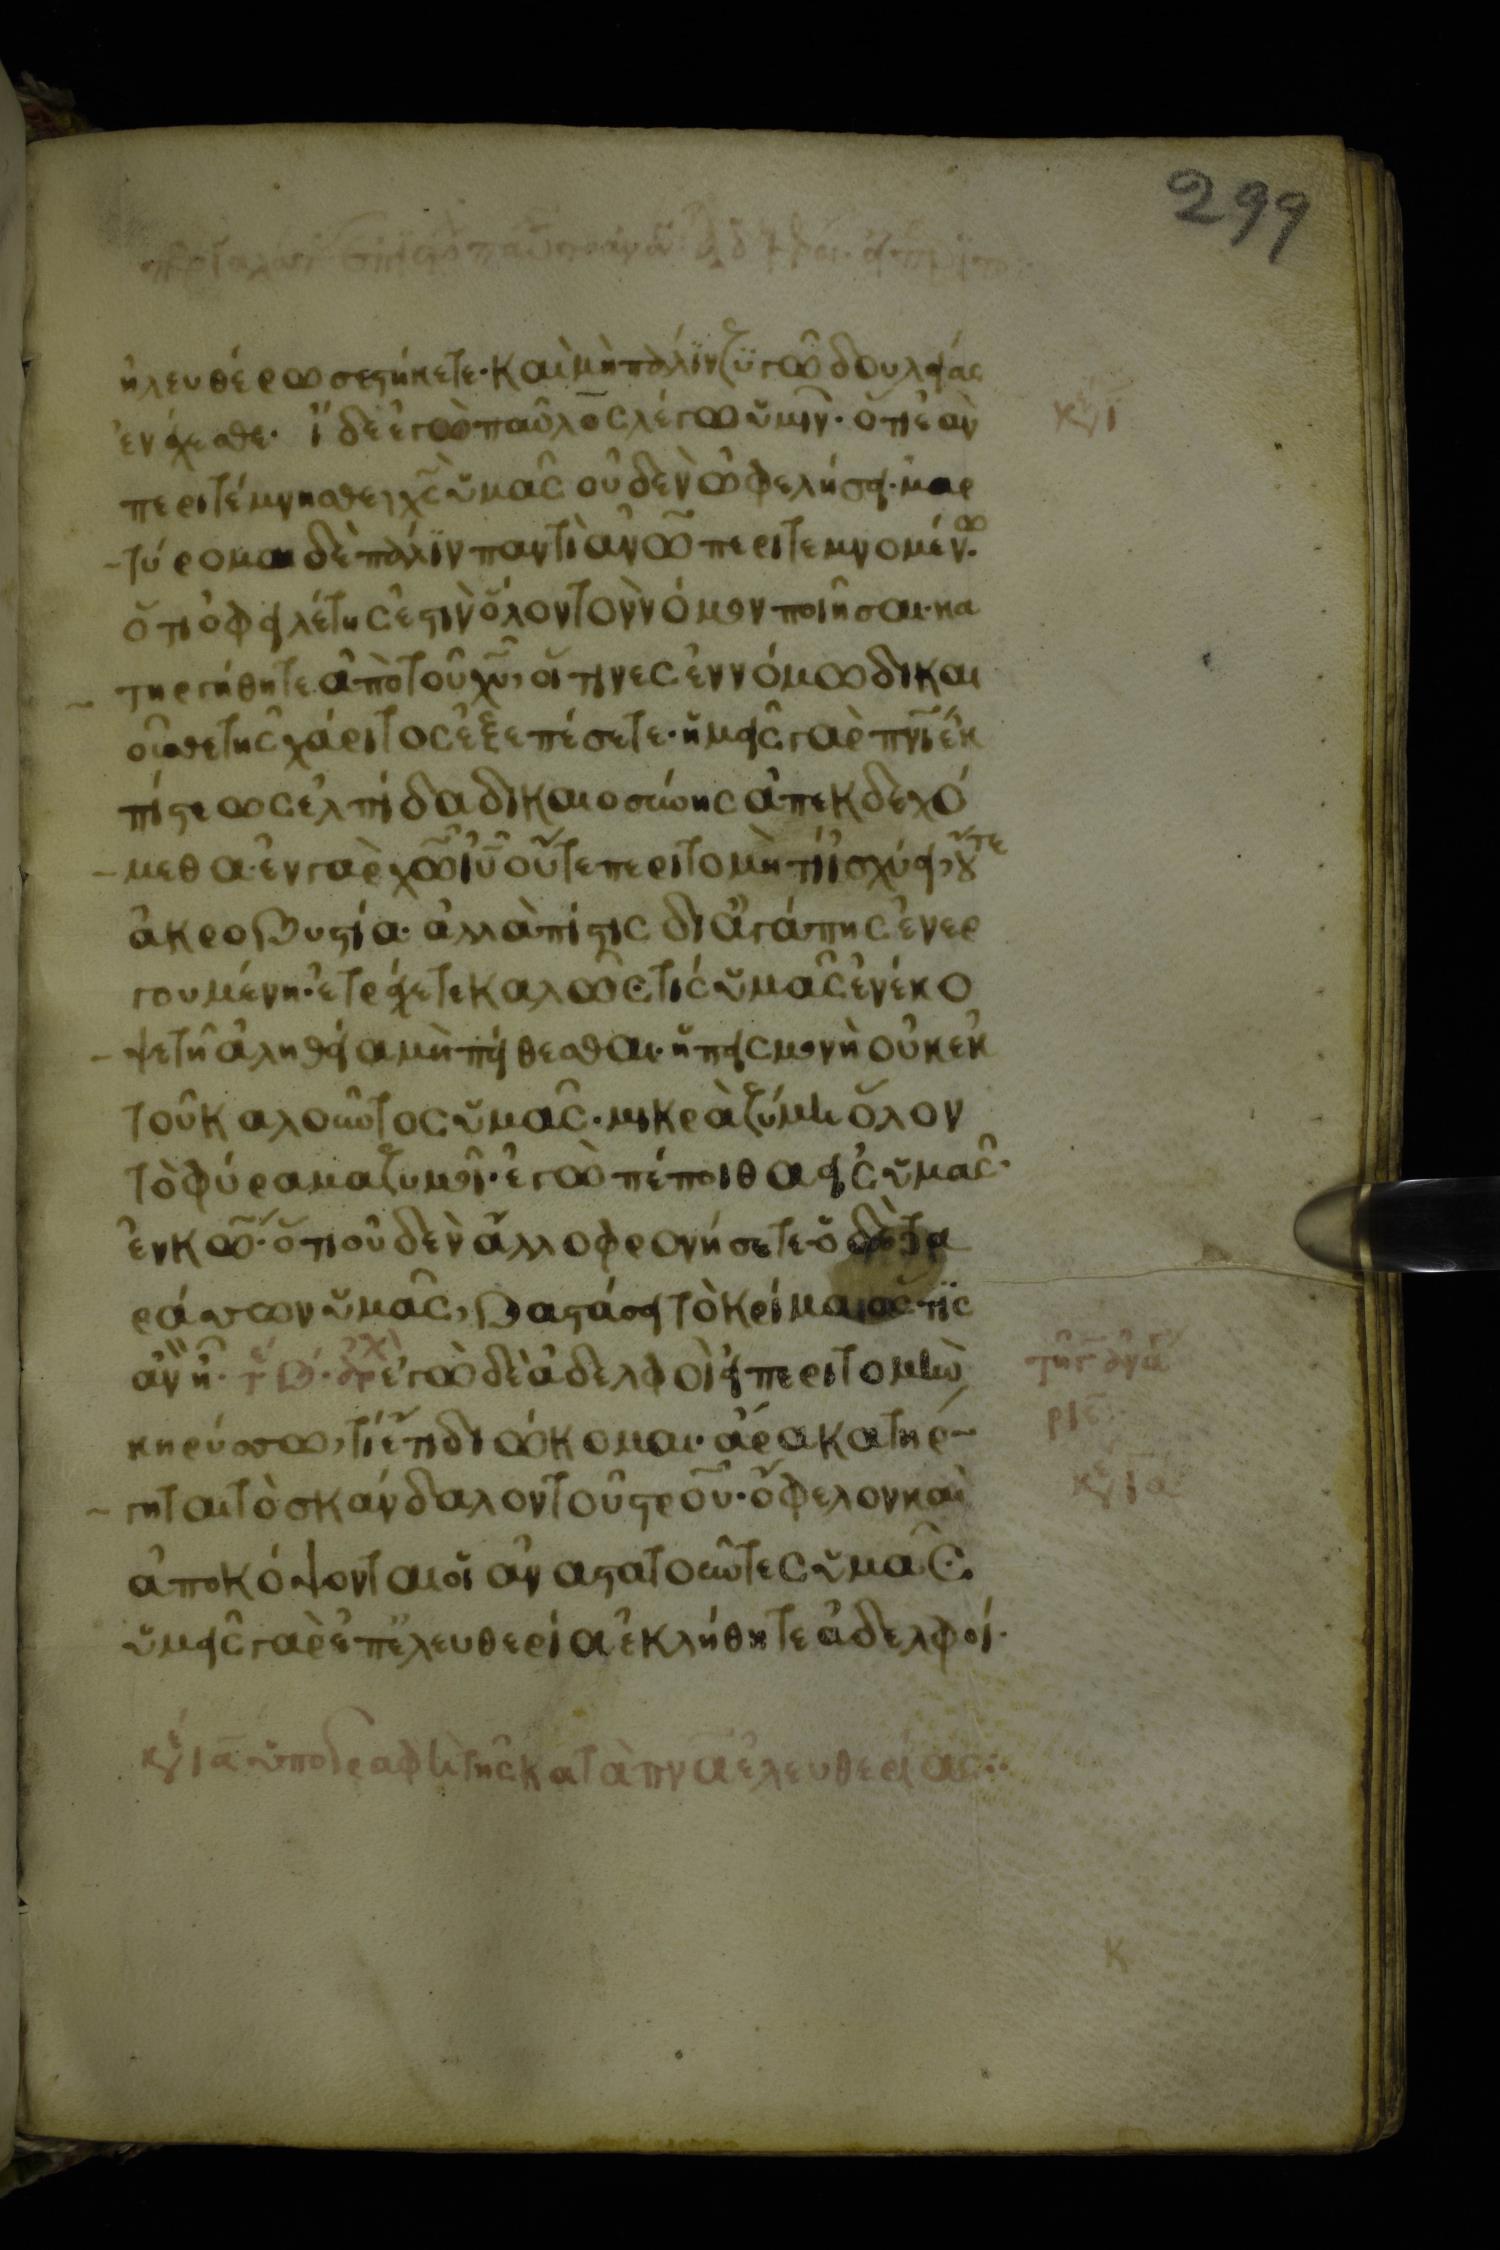 299
ἠλευθέρωσε στήκετε· καὶ μὴ πάλιν ζυγῶ δουλείας
κε ϊ
ἐνέχεσθε· ἴδε ἐγὼ παῦλος λέγω ὑμῖν· ὅτι ἐὰν
περιτέμνησθε, χς ὑμᾶς οὐδὲν ὠφελήσει· μαρ
τύρομαι δὲ πάλιν παντὶ ἀνω περιτεμνομένω·
ὅτι ὀφειλέτης ἐστὶν ὅλον τὸν νόμον ποιῆσαι· κα
τηργήθητε ἀπὸ τοῦ χυ, οἵτινες ἐν νόμω δικαι
οῦσθε τῆς χάριτος ἐξεπέσετε· ἡμεῖς γὰρ πνι ἐκ
πίστεως ἐλπίδα δικαιοσύνης ἀπεκδεχό
μεθα· ἐν γὰρ χω ιυ οὔτε περιτομή τι ἰσχύει, οὔτε
ἀκροβυστία· ἀλλὰ πίστις δι ἀγάπης ἐνερ
γουμένη· ἐτρέχετε καλῶς τίς ὑμᾶς ἐνέκο
ψε τῆ ἀληθεία μὴ πείθεσθαι· ἡ πεισμονὴ οὐκ ἐκ
τοῦ καλοῦντος ὑμᾶς· μικρὰ ζύμη ὅλον
τὸ φύραμα ζυμοῖ· ἐγὼ πέποιθα εἰς ὑμᾶς·
ἐν κω· ὅτι οὐδὲν ἄλλο φρονήσετε· ὁ δὲ τα
ράσσων ὑμᾶς, βαστάσει τὸ κρίμα ὅστις
ἂν ἦ· ἐγὼ δὲ ἀδελφοὶ εἰ περιτομὴν
κηρύσσω, τί ἔτι διώκομαι· ἄρα κατήρ
γηται τὸ σκάνδαλον τοῦ στρου· ὄφελον καὶ
κε ια
ἀποκόψονται οἱ ἀναστατοῦντες ὑμᾶς·
ὑμεῖς γὰρ ἐπ ἐλευθερία ἐκλήθητε ἀδελφοί·
κε ια ὑπογραφὴ τῆς κατὰ πνα ἐλευθερίας:
κ